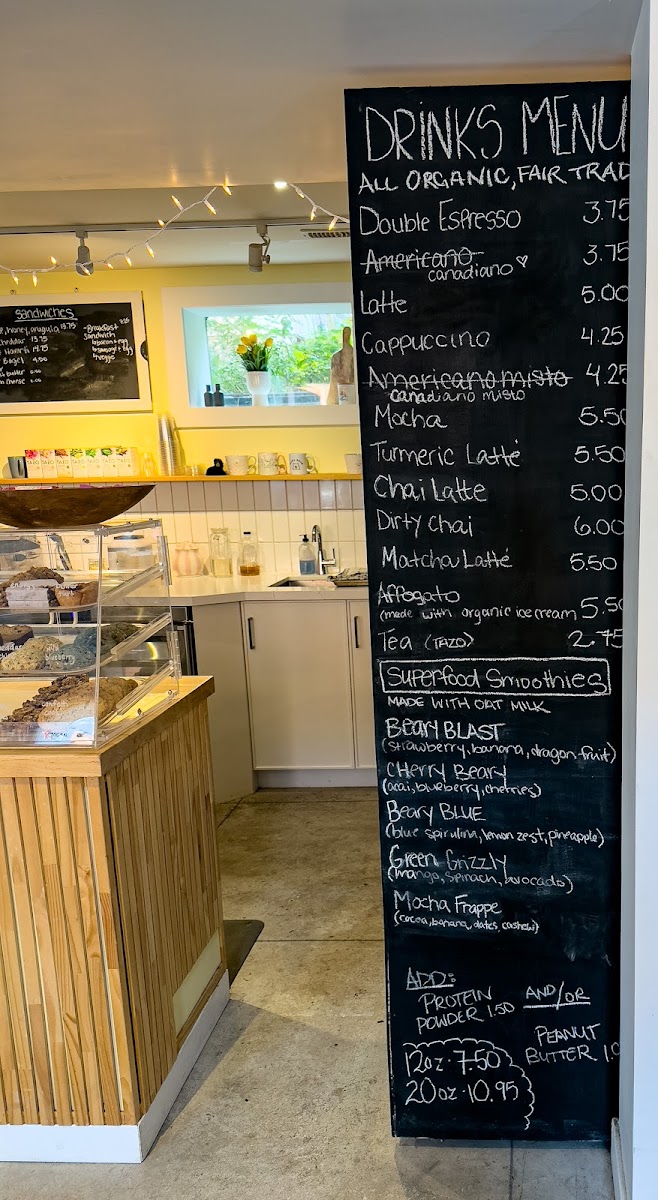 DRINKS MENU
ALL ORGANIC, FAIR TRAD
Double Espresso 3.75
Americano 3.75
canadiano
Latte 5.00
Cappuccino 4.25
Americano misto 4.25
canadiano misto
Mocha 5.50
Turmeric Latté 5.50
Chai Latte 5.00
Dirty chai 6.00
Matcha Latté 5.50
Affogato 5.50
(made with organic ice cream
Tea (TAZO) 2.75
Superfood Smoothies
MADE WITH OAT MILK
Beary BLAST
(strawberry, banana, dragon-fruit)
CHerry Beary
(acai, blueberry, cherries)
Beary BLUE
(blue spirulina, lemon zest, pineapple)
Green Grizzly
(mango, spinach, avocado)
Mocha Frappe
(cocoa, banana, dates, cashew)
ADD:
PROTEIN
POWDER 1.50
AND/OR
PEANUT
BUTTER 1.0
12oz · 7.50
20oz · 10.95
Sandwiches
honey, arugula 13.75
cheddar 13.75
14.75
Bagel
butter
cheese
Breakfast
sandwich
TAZO
blueberry